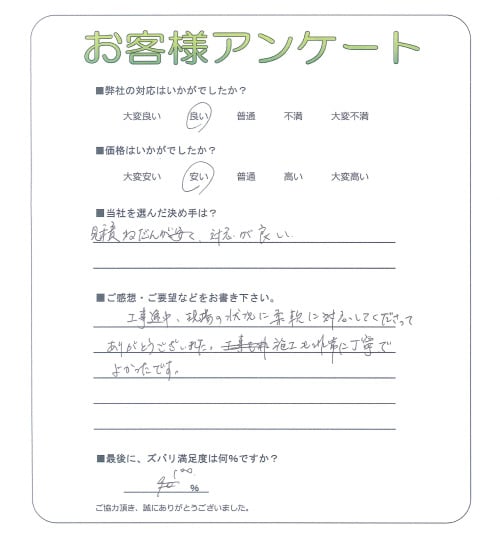 お客様アンケート
■弊社の対応はいかがでしたか？
大変良い 良い 普通 不満 大変不満
■価格はいかがでしたか？
大変安い 安い 普通 高い 大変高い
■当社を選んだ決め手は？
見積ねだんが安く、対応が良い
■ご感想・ご要望などをお書き下さい。
工事途中、現場の状況に柔軟に対応してくださって
ありがとうございました。施工も非常に丁寧で
よかったです。
■最後に、ズバリ満足度は何％ですか？
100 %
ご協力頂き、誠にありがとうございました。